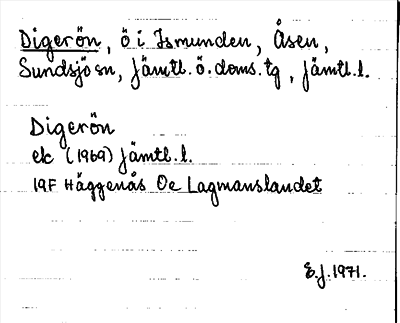 Digerön, ö i Ismunden, Åsen,
Sundsjö sn, Jämtl. ö. doms. tg, Jämtl. l.
Digerön
ek (1969) Jämtl. l.
19F Häggenås Oc Lagmanslandet
E.J. 1971.